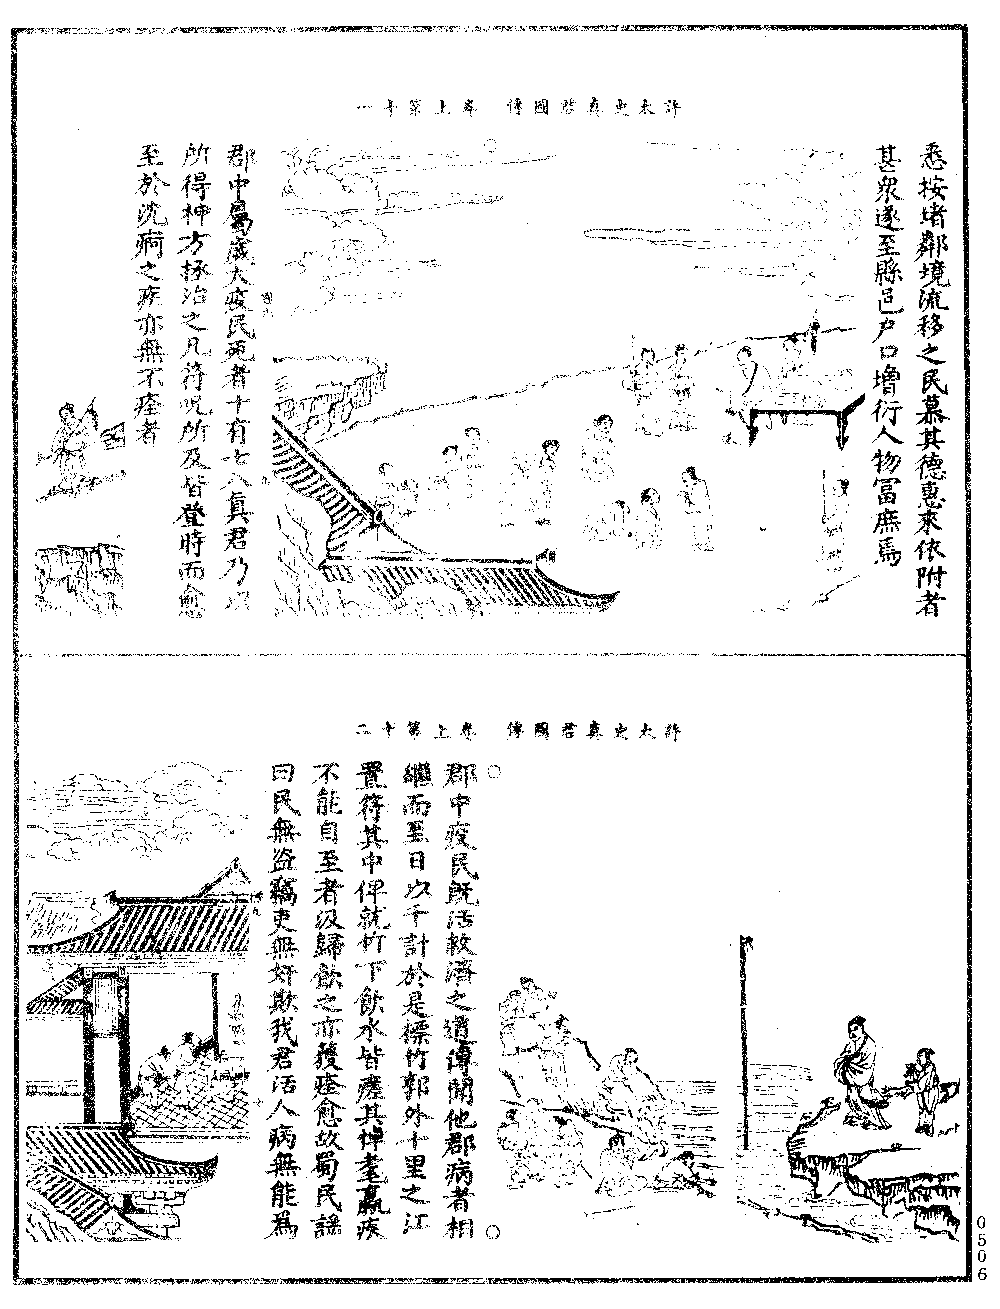 許太史真君圖傳　卷上第十一
悉按堵鄰境流移之民慕其德惠來依附者
甚衆遂至縣邑戶口增衍人物富庶焉
郡中屬歲大疫民死者十有七八真君乃以
所得神方拯治之凡符呪所及皆登時而愈
至於沈痾之疾亦無不痊者
許太史真君圖傳　卷上第十二
○郡中疫民既活救濟之道傳聞他郡病者相○
繼而至日以千計於是標竹郭外十里之江
置符其中俾就竹下飲水皆瘥其悼耄羸疾
不能自至者汲歸飲之亦獲痊愈故蜀民謠
曰民無盜竊吏無奸欺我君活人病無能爲
0506